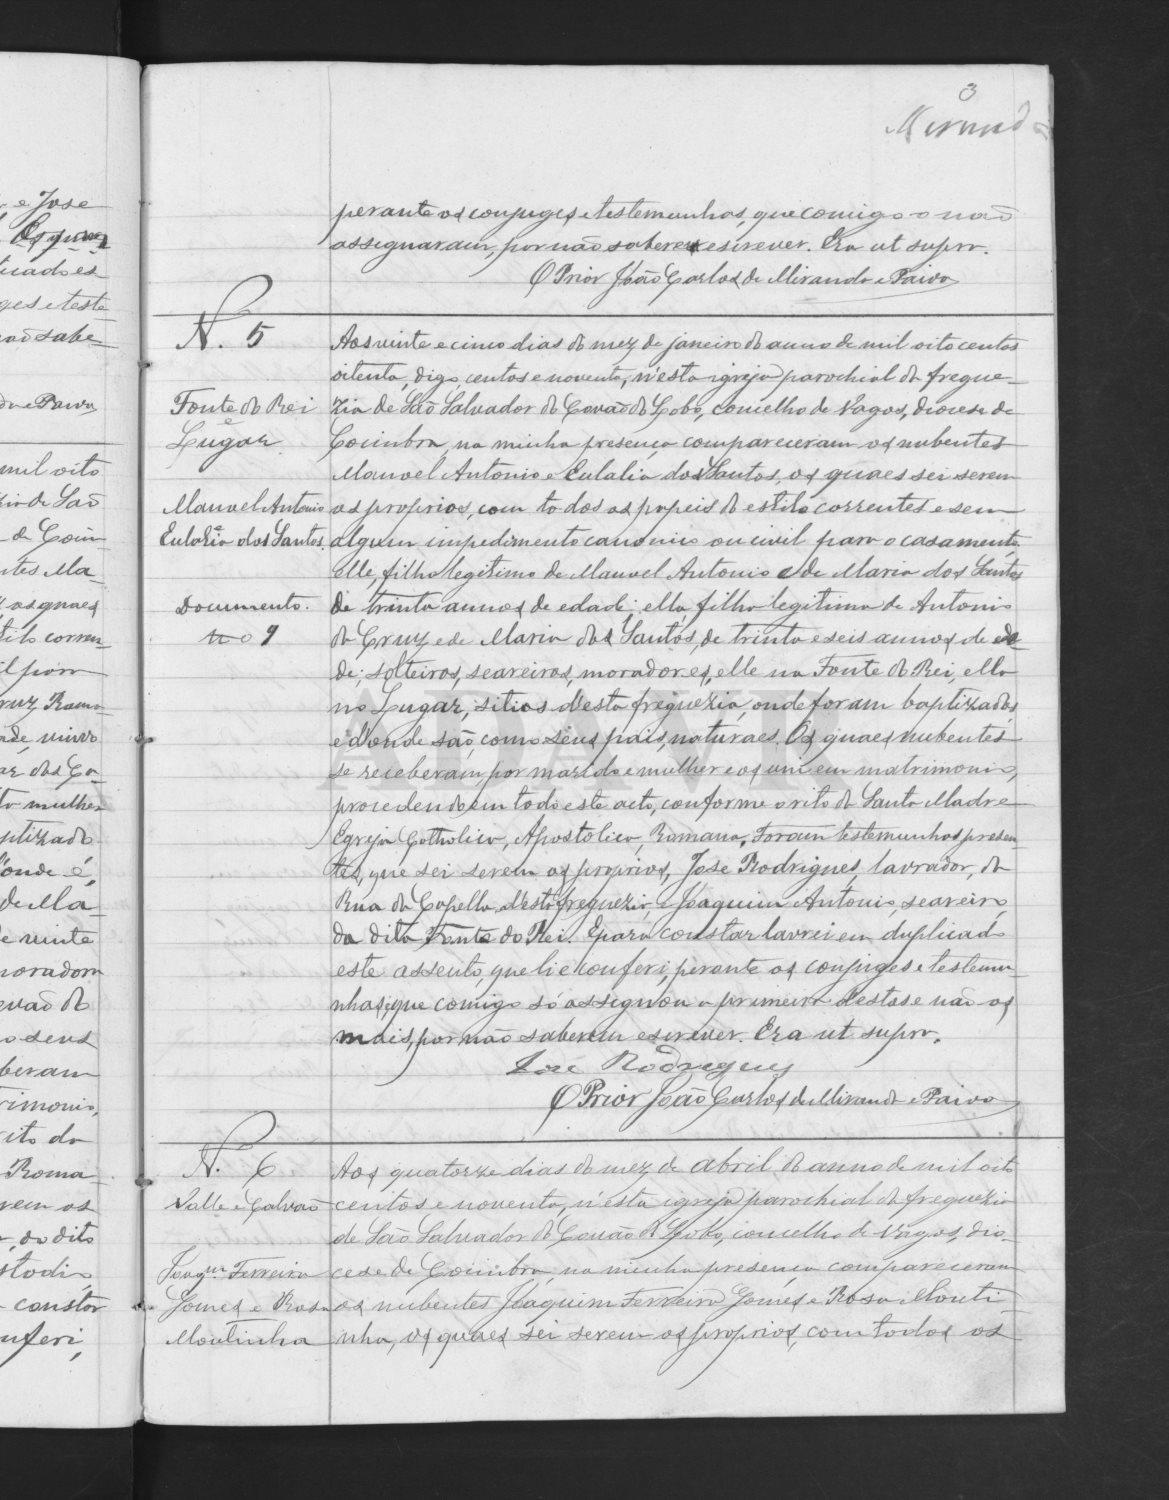 e José
ticado es
ges e teste
não sabe
da e Paiva
mil oito
zia de São
de Coim
ntes Ma
os quaes
tilo corren
il para
ruz Ramo
ade, viuvo
ar, dos Ca
ta mulher
ptizado
onde é,
de Ma
e vinte
moradora
ovão do
o seus
beram
rimonio,
rito da
Roma
rem os
, do dito
stodio
constar
nferi,
3
Miranda
perante os conjuges e testemunhas, que comigo o não
assignaram, por não saberem escrever. Era ut supra.
O Prior João Carlos de Miranda e Paiva
N. 5
Fonte do Rei
e
Lugar
Manoel Antonio
Eulalia dos Santos
Documento.
no 9
Aos vinte e cinco dias do mez de janeiro do anno de mil oito centos
oitenta, digo, centos e noventa, n'esta igreja parochial da fregue-
zia de São Salvador do Covão do Lobo, concelho de Vagos, diocese de
Coimbra, na minha presença compareceram os nubentes
Manoel Antonio e Eulalia dos Santos, os quaes sei serem
os proprios, com todos os papeis do estilo correntes e sem
algum impedimento canonico ou civil para o casamento,
elle, filho legitimo de Manoel Antonio e de Maria dos Santos
de trinta annos de edade; ella, filha legitima de Antonio
da Cruz e de Maria dos Santos, de trinta e seis annos de eda
de; solteiros, seareiros, moradores, elle na Fonte do Rei, ella
no Lugar, sitios d'esta freguezia, onde foram baptizados
e d'onde são, como seus pais, naturaes. Os quaes nubentes
se receberam por marido e mulher e os uni em matrimonio,
procedendo em todo este acto, conforme o rito da Santa Madre
Egreja Catholica, Apostolica, Romana. Foram testemunhas presen
tes, que sei serem os proprios, José Rodrigues, lavrador, da
Rua da Capella, d'esta freguezia, e Joaquim Antonio, seareiro
da dita Fonte do Rei. E para constar lavrei em duplicado
este assento, que li e conferi, perante os conjuges e testemu
nhas, que comigo só assignou a primeira d'estas e não os
mais, por não saberem escrever. Era ut supra.
José Rodrigues
O Prior João Carlos de Miranda e Paiva
N. 6
Valle e Galvão
Joaqm. Ferreira
Gomes e Rosa
Moutinha
Aos quatorze dias do mez de abril do anno de mil oito
centos e noventa, n'esta igreja parochial da freguezia
de São Salvador do Covão do Lobo, concelho de Vagos, dio-
cese de Coimbra, na minha presença compareceram
os nubentes Joaquim Ferreira Gomes e Rosa Mouti
nha, os quaes sei serem os proprios, com todos os